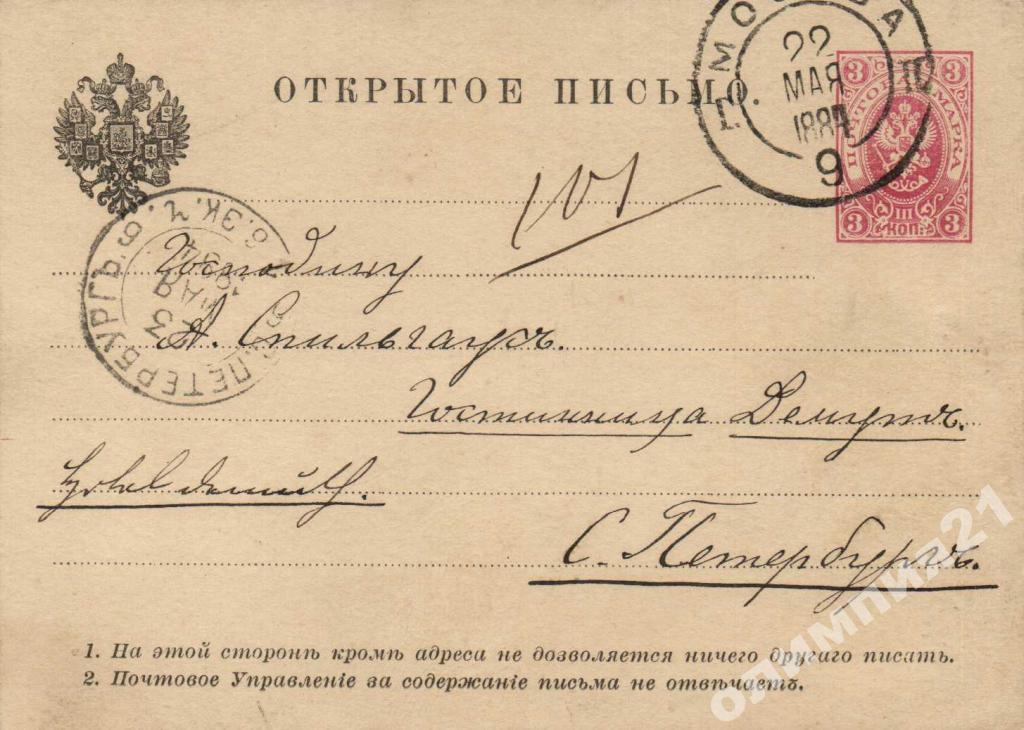 ОТКРЫТОЕ ПИСЬМО.
МОСКВА
22
МАЯ
1884
9
ПОЧТОВАЯ МАРКА
3 3
III
3 КОП. 3
101
С.ПЕТЕРБУРГЪ.
МАЯ
1884
Господину
А. Спильгаузъ.
Гостинница Демутъ.
Hotel Demuth.
С. Петербургъ.
1. На этой сторонѣ кромѣ адреса не дозволяется ничего другаго писать.
2. Почтовое Управленіе за содержаніе письма не отвѣчаетъ.
олимпиз21